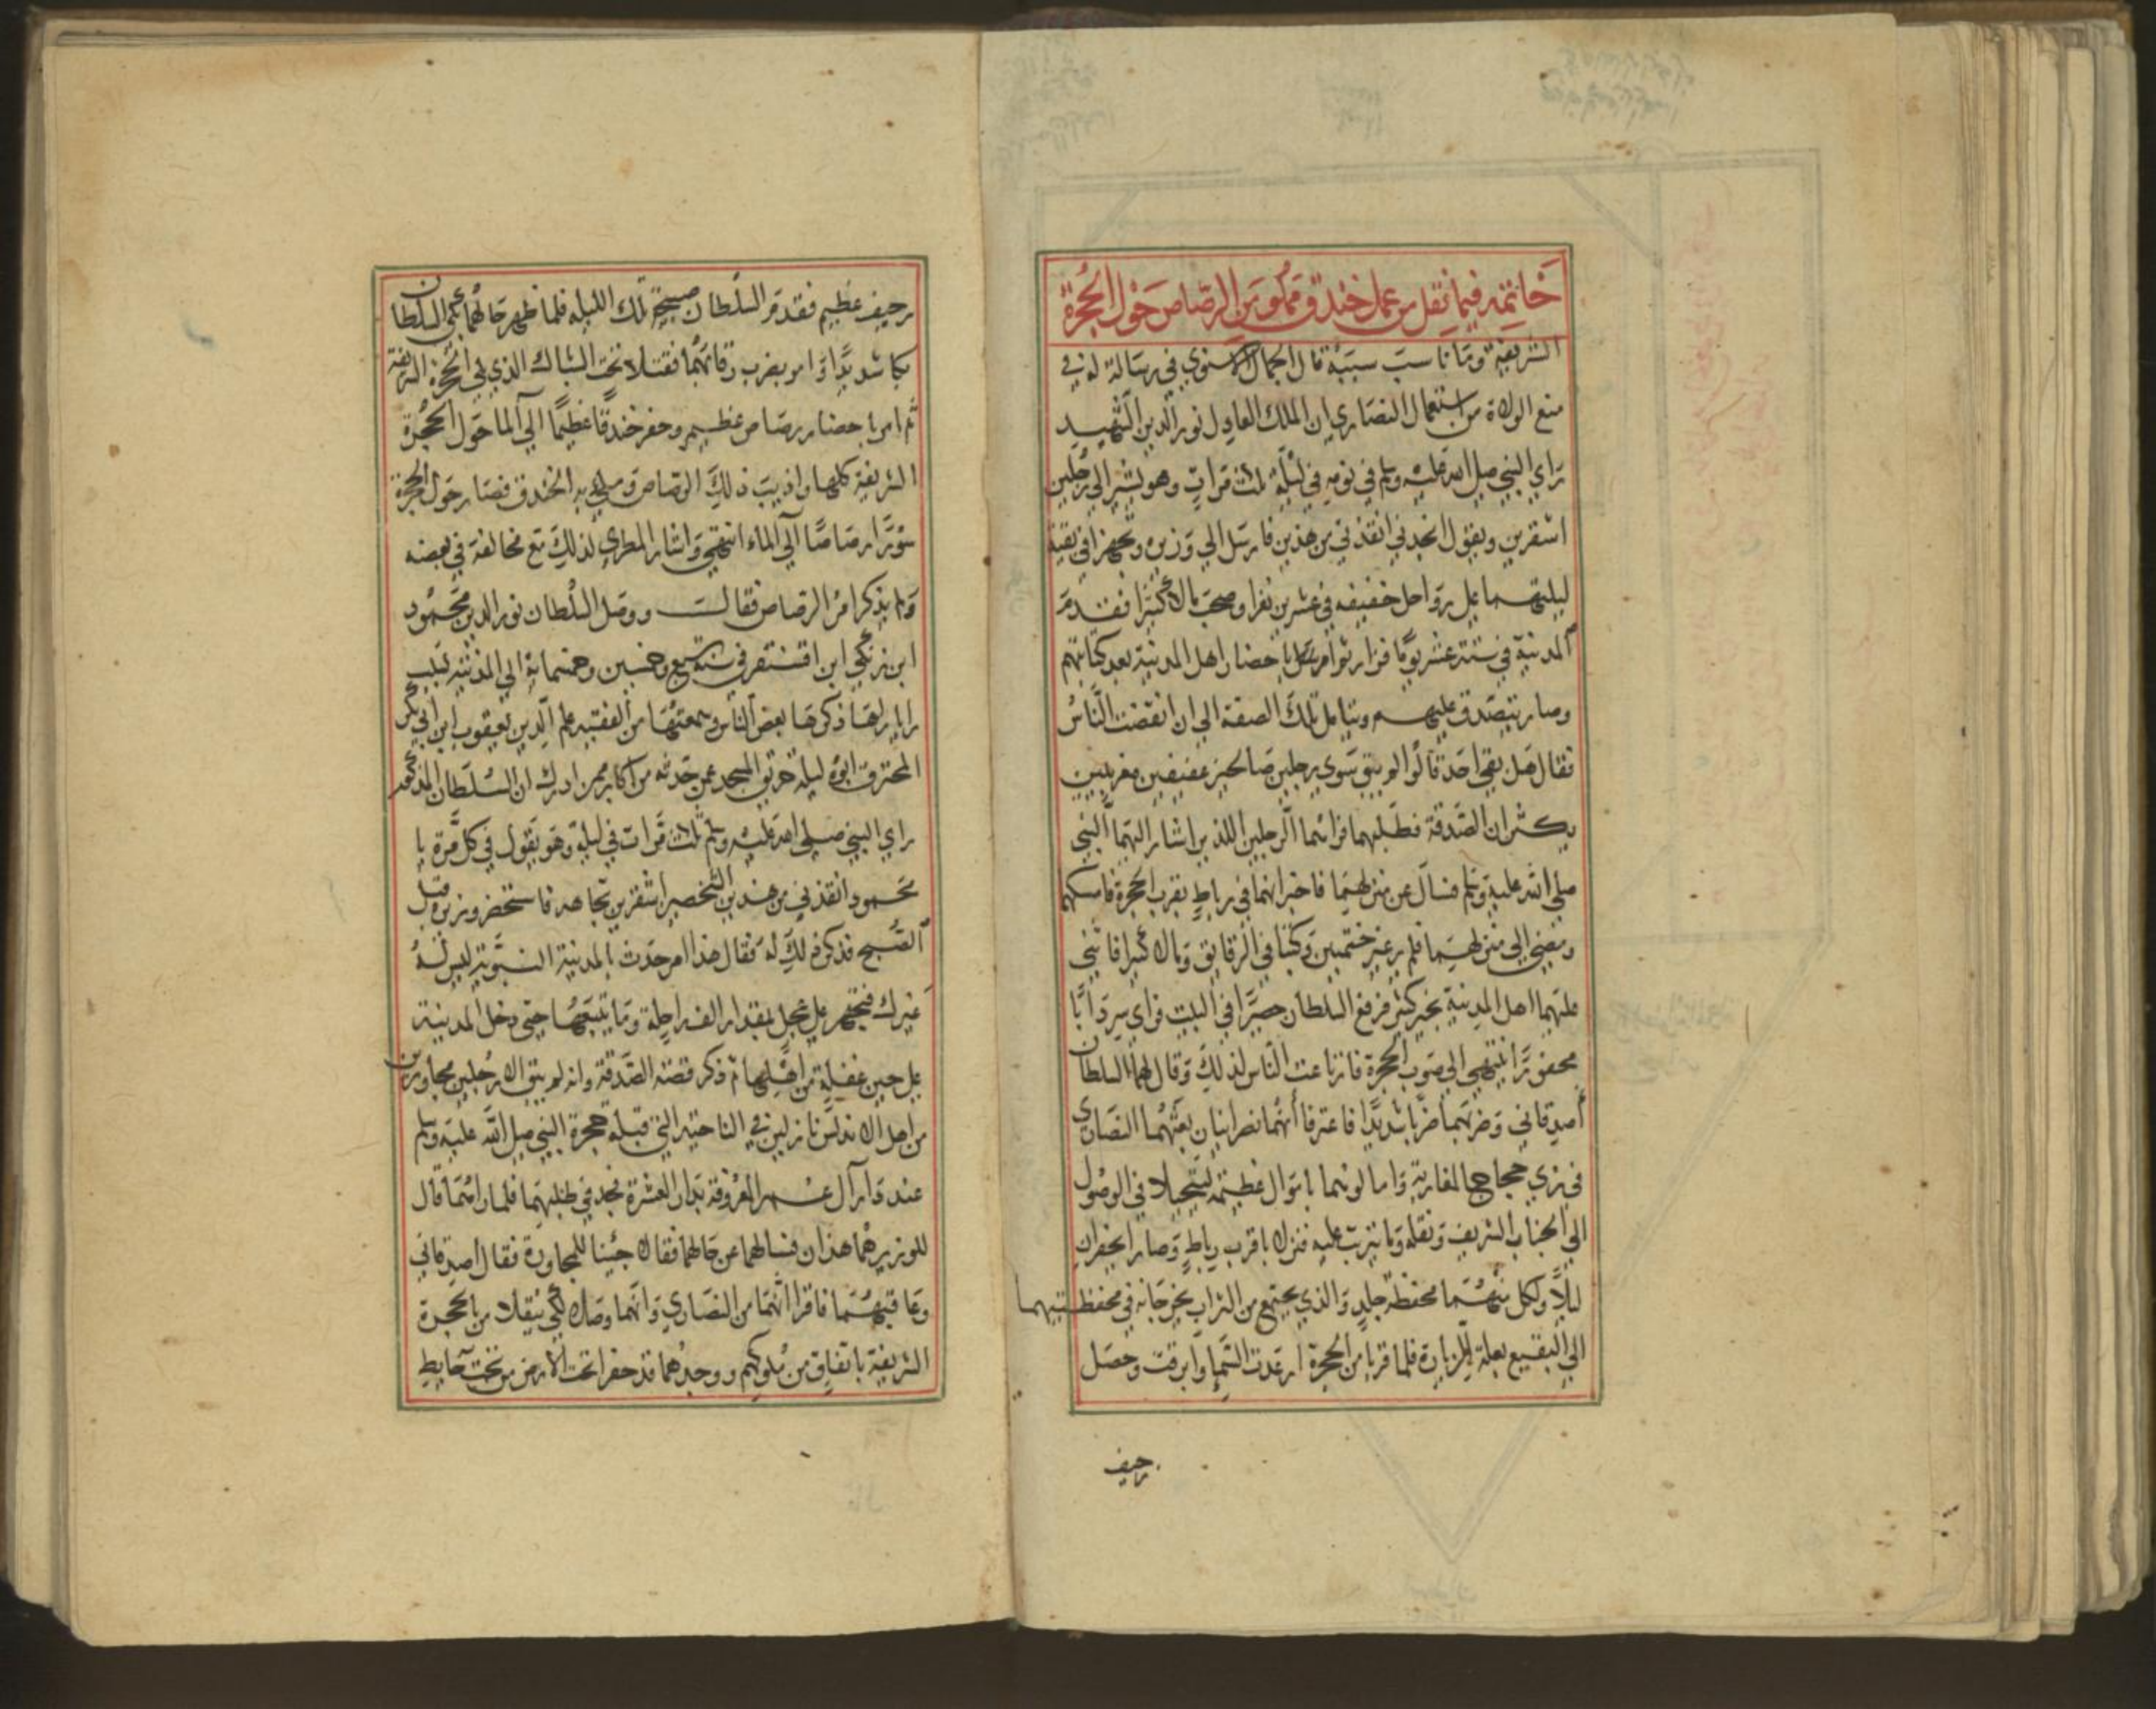 خاتمة فيما نقل من عمل خندق مملو من الرصاص حول الحجرة
الشريفة وما ناسب سببه قال الجمال الاسنوي في رسالة له في
منع الولاة من استعمال النصاري ان الملك العادل نور الدين الشهيد
راي النبي صلى الله عليه وسلم في نومه في ليلة ثلث مرات وهو يشير الي رجلين
اشقرين ويقول انجدني انقذني من هذين فارسل الي وزيره وتجهزا في بقية
ليلتهما علي رواحل خفيفه في عشرين نفرا وصحب مالا كثيرا فقدم
المدينة في ستة عشر يوما فزار ثم امر باحضار اهل المدينة بعد كتابتهم
وصار يتصدق عليهم ويتامل تلك الصفة الي ان انفضت الناس
فقال هل بقي احد قالوا لم يبق سوي رجلين صالحين عفيفين مغربيين
يكثران الصدقة فطلبهما فراهما الرجلين اللذين اشار اليهما النبي
صلى الله عليه وسلم فسال عن منزلهما فاخبر انهما في رباط بقرب الحجرة فامسكهما
ومضي الي منزلهما فلم ير غير ختمتين وكتبا في الرقايق ومالا كثيرا فاثني
عليهما اهل المدينة بخير كثير فرفع السلطان حصيرا في البيت فراي سردابا
محفورا ينتهي الي صوب الحجرة فارتاعت الناس لذلك وقال لهما السلطان
اصدقاني وضربهما ضربا شديدا فاعترفا انهما نصرانيان بعثهما النصاري
في زي حجاج المغاربة وامالوهما باموال عظيمة ليتحيلا في الوصول
الي الجناب الشريف ونقله وما يترتب عليه فنزلا باقرب رباط وصارا يحفران
ليلا ولكل منهما محفظة جلد والذي يجتمع من التراب يخرجانه في محفظتيهما
الي البقيع بعلة الزيارة فلما قربا من الحجرة ارعدت السما وابرقت وحصل
رجيف
رجيف عظيم فقدم السلطان صبيحة تلك الليله فلما ظهر حالهما بكي السلطان
بكا شديدا وامر بضرب رقابهما فقتلا تحت الشباك الذي يلي الحجرة الشريفة
ثم امر باحضار رصاص عظيم وحفر خندقا عظيما الي الما حول الحجرة
الشريفة كلها واذيب ذلك الرصاص وملئ به الخندق فصار حول الحجرة
سورا رصاصا الي الماء انتهي واشار المطري لذلك مع مخالفة في بعضه
ولم يذكر امر الرصاص فقال ووصل السلطان نور الدين محمود
ابن زنكي ابن اقسنقر في سنة سبع وخمسين وخمسمائة الي المدينة بسبب
رايا راها ذكرها بعض الناس وسمعتها من الفقيه علم الدين يعقوب ابن ابي بكر
المحترق ابوه ليلة حريق المسجد عمن حدثه من اكابر من ادرك ان السلطان المذكور
راي النبي صلى الله عليه وسلم ثلث مرات في ليلة وهو يقول في كل مرة يا
محمود انقذني من هذين الشخصين اشقرين تجاهه فاستحضر وزيره قبل
الصبح فذكر ذلك له فقال هذا امر حدث بالمدينة النبوية ليس له
غيرك فتجهز علي عجل بمقدار الف راحلة وما يتبعها حتي دخل المدينة
علي حين غفلة من اهلها ثم ذكر قصة الصدقة وانه لم يبق الا رجلين مجاورين
من اهل الاندلس نازلين في الناحية التي قبلة حجرة النبي صلى الله عليه وسلم
عند دار آل عمر المعروفة بدار العشرة فجد في طلبهما فلما راهما قال
للوزير هما هذان فسالهما عن حالهما فقالا جئنا للمجاورة فقال اصدقاني
وعاقبهما فاقرا انهما من النصاري وانهما وصلا لكي ينقلا من بالحجرة
الشريفة باتفاق من ملوكهم ووجدهما قد حفرا تحت الارض من تحت حايط